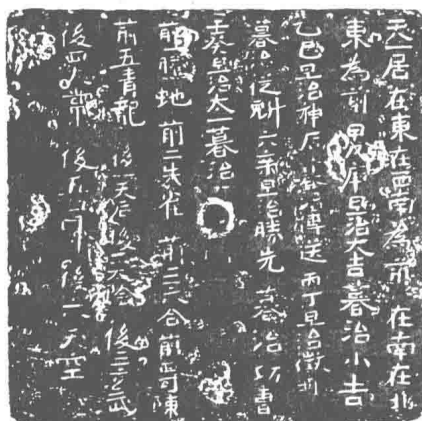 天一居在東在西南為前 在南在北
東為前 甲戊庚旦治大吉暮治小吉
乙己旦治神后暮治傳送 丙丁旦治徵明
暮治從魁 六辛旦治勝先 暮治功曹
壬癸旦治太一暮治
前一螣蛇 前二朱雀 前三六合 前四勾陳
前五青龍 後一天后 後二 後三玄武
後四 後五 後六天空